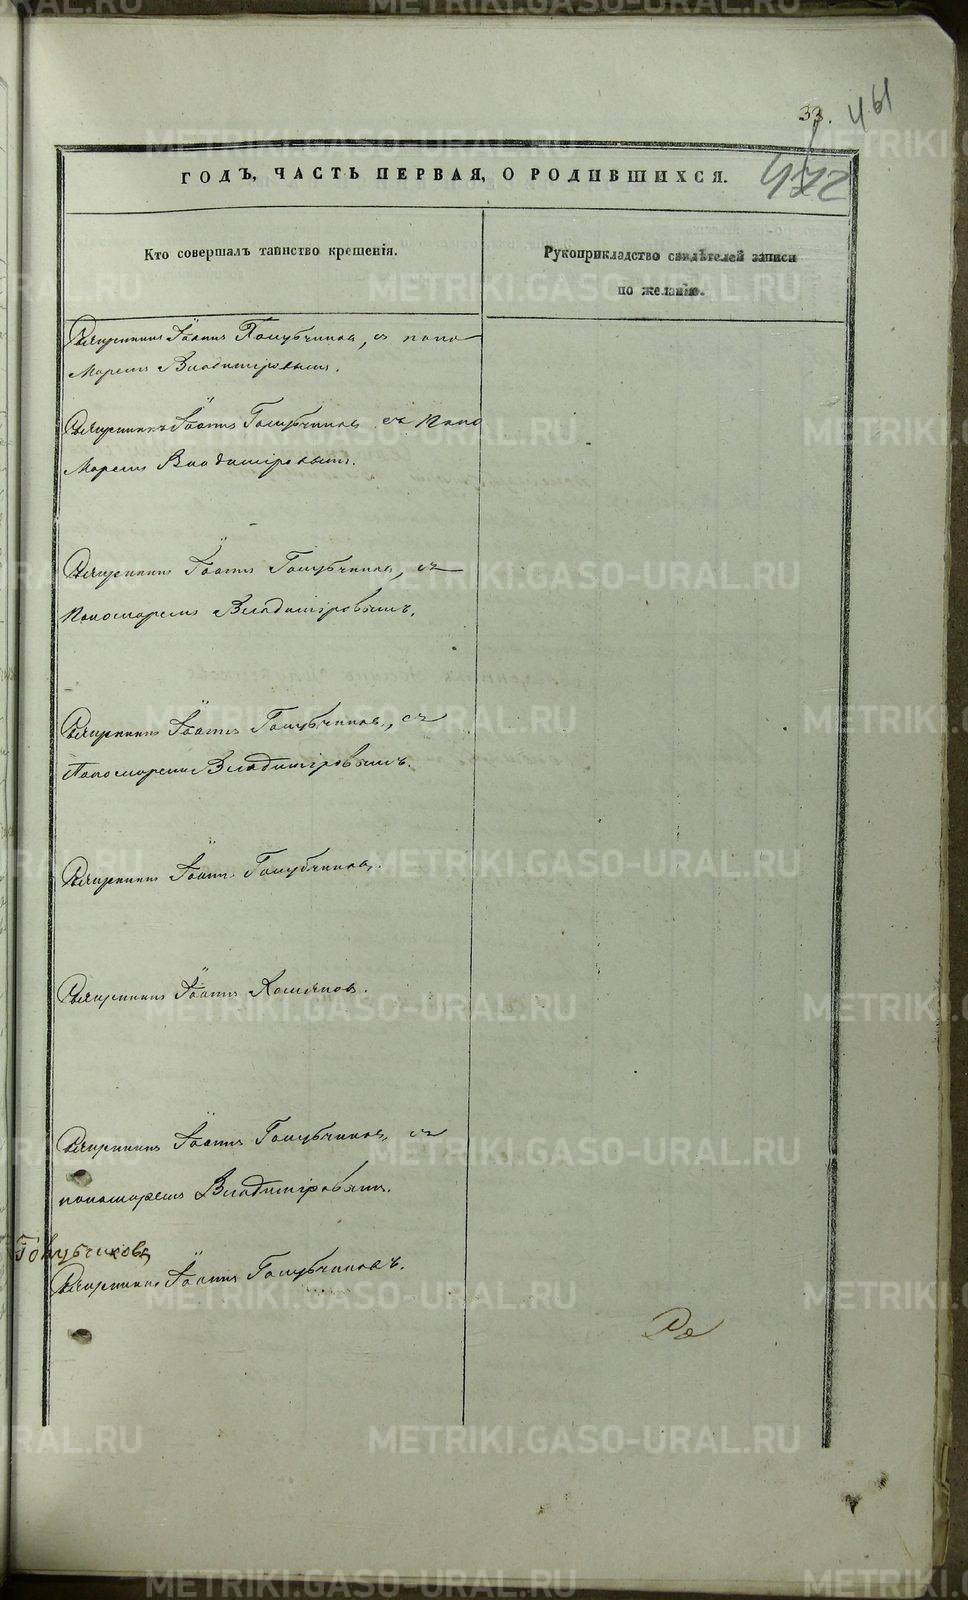 33. 461
472
ГОДЪ, ЧАСТЬ ПЕРВАЯ, О РОДИВШИХСЯ.
Кто совершалъ таинство крещенія.
Рукоприкладство свидѣтелей записи
по желанію.
Священникъ Іоаннъ Голубчиковъ, съ поно
маремъ Владиміровымъ.
Священникъ Іоаннъ Голубчиковъ съ Поно
маремъ Владиміровымъ.
Священникъ Іоаннъ Голубчиковъ, съ
Пономаремъ Владиміровымъ.
Священникъ Іоаннъ Голубчиковъ, съ
Пономаремъ Владиміровымъ.
Священникъ Іоаннъ Голубчиковъ.
Священникъ Іоаннъ
Священникъ Іоаннъ Голубчиковъ, съ
пономаремъ Владиміровымъ.
Голубчиковъ
Священникъ Іоаннъ Голубчиковъ.
METRIKI.GASO-URAL.RU